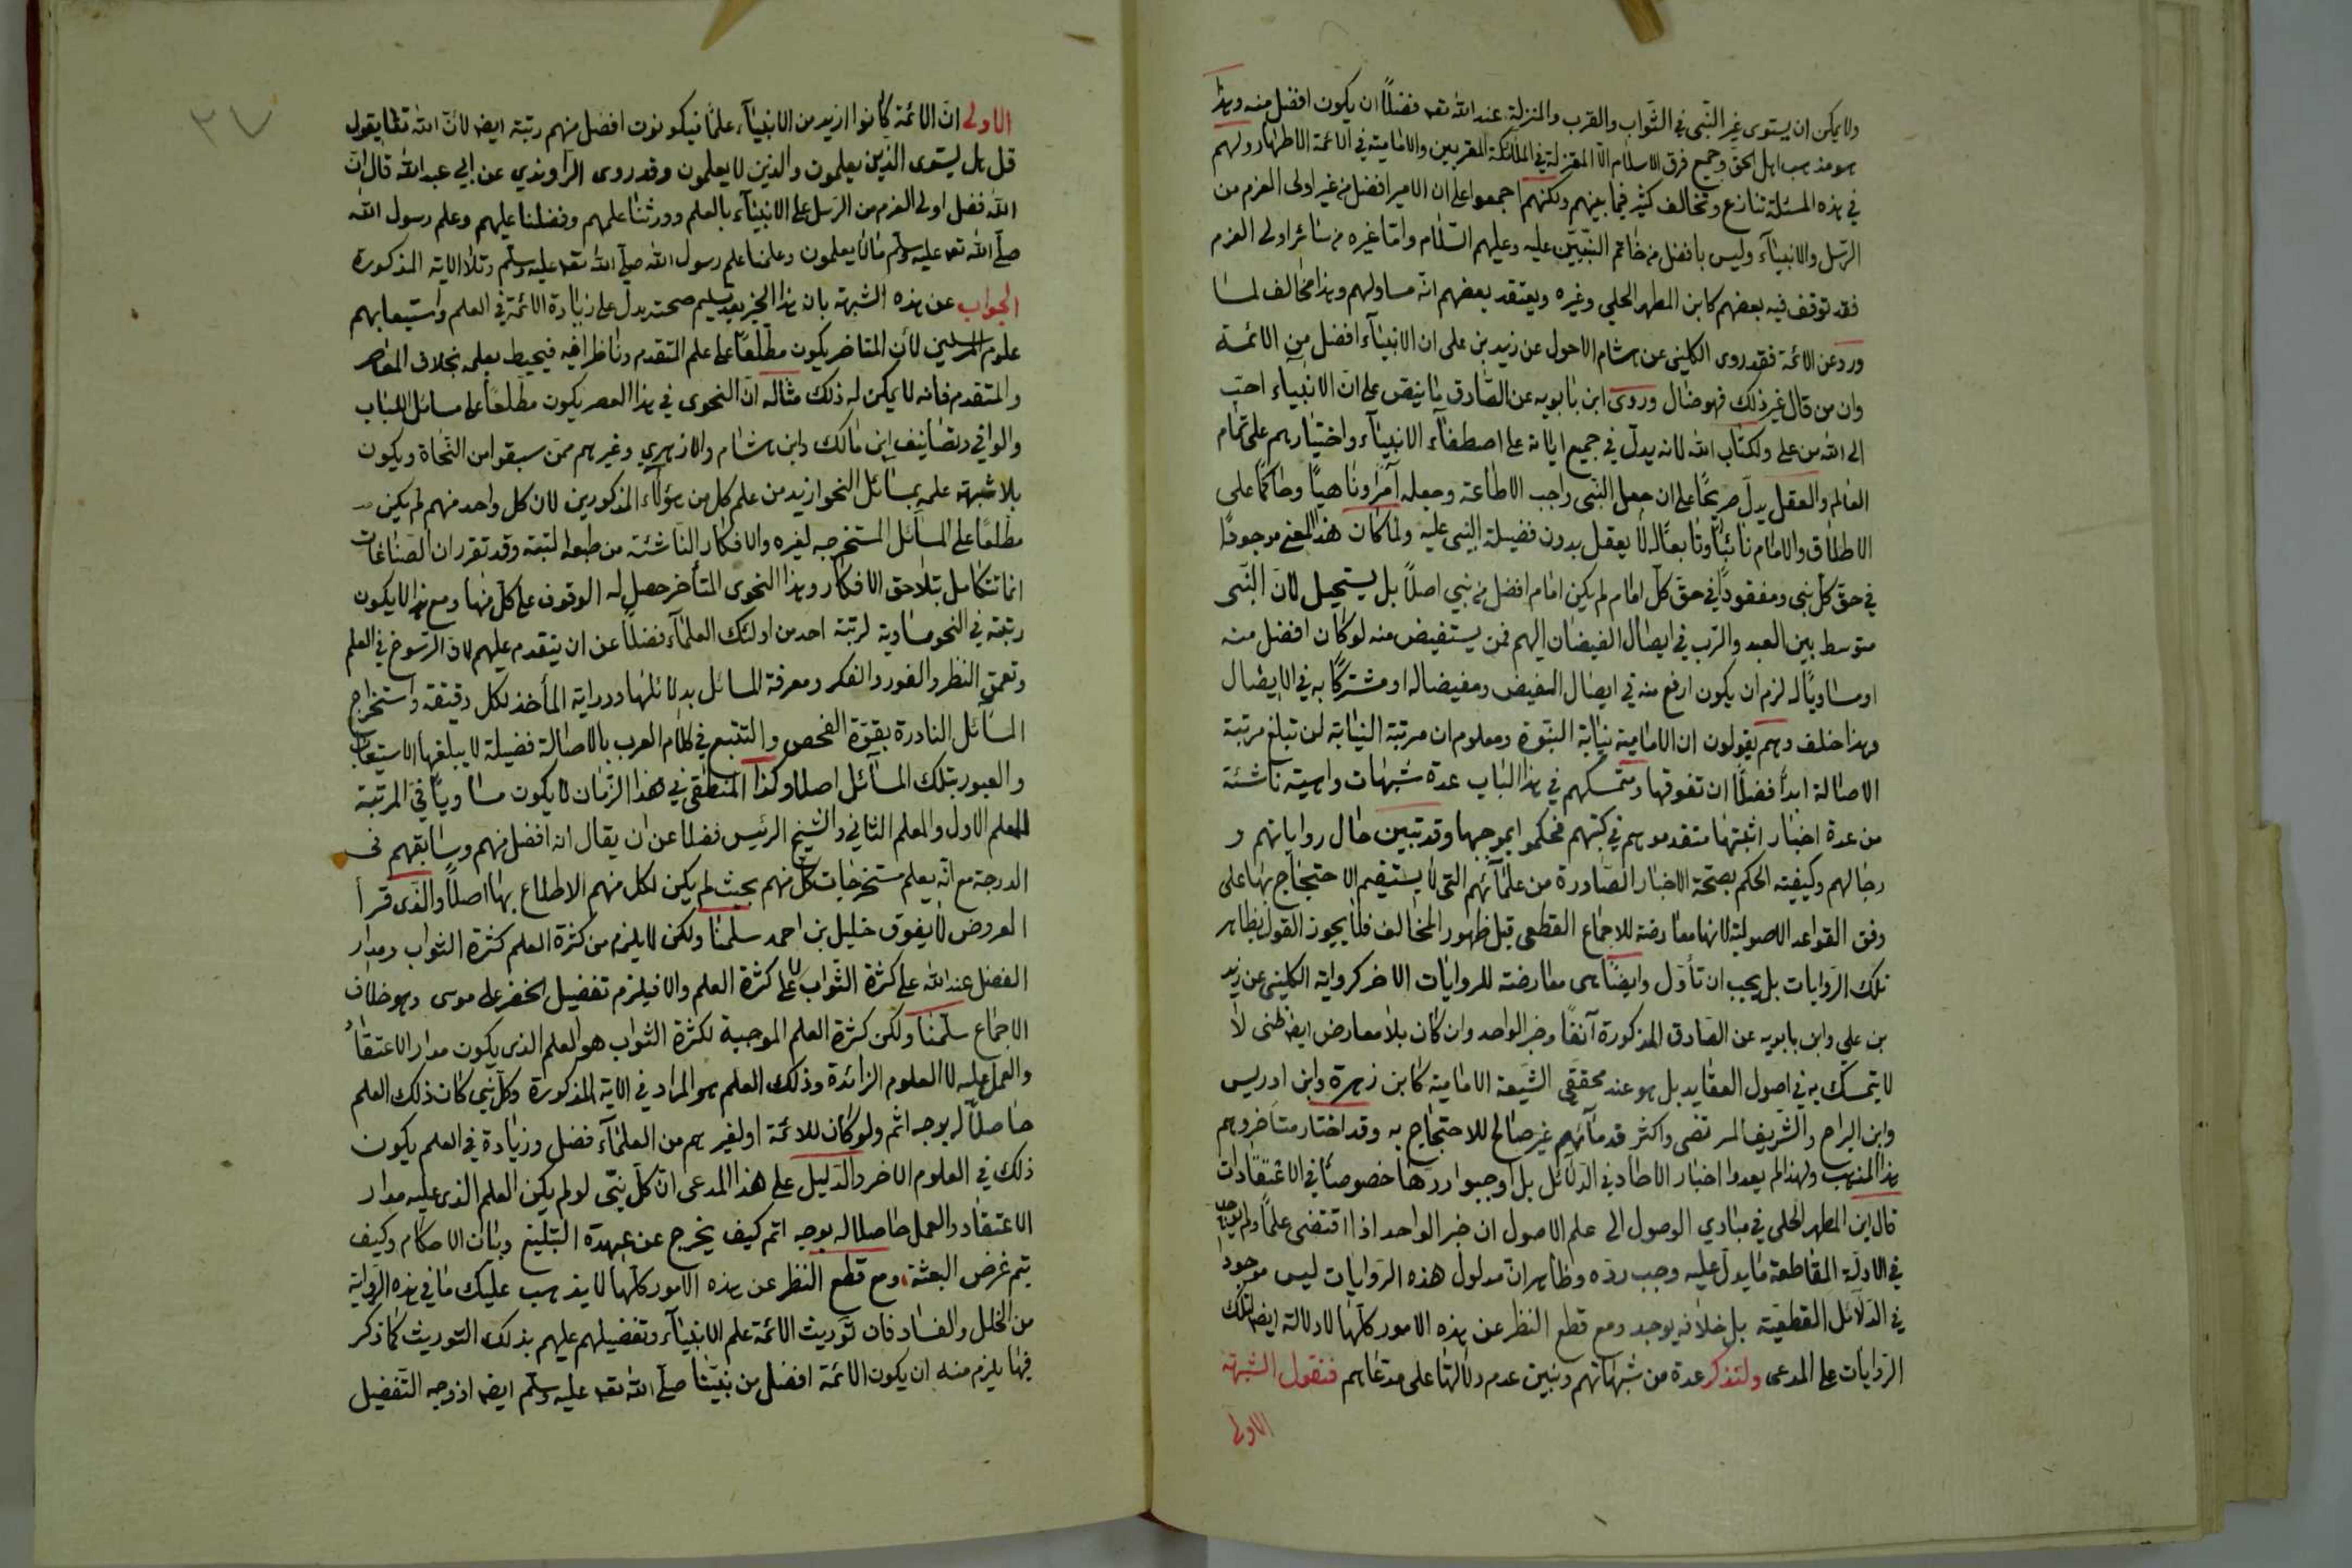 ولا يمكن ان يستوى غير النّبى في الثّواب والقرب والمنزلة عند الله تعه فضلًا ان يكون افضل منه وهذا
هو مذهب اهل الحق وجميع فرق الاسلام الّا المعتزلة في الملائكة المقربين والامامية في الائمة الاطهار ولهم
في هذه المسئلة تنازع وتخالف كثير فيما بينهم ولكنهم اجمعوا على ان الامير افضل من غير اولى العزم من
الرّسل والانبيآء وليس بافضل من خاتم النّبيّين عليه وعليهم السّلام وامّا غيره من سائر اولى العزم
فقد توقف فيه بعضهم كابن المطهر الحلي وغيره ويعتقد بعضهم انّه مساولهم وهذا مخالف لما
ورد عن الائمة فقد روى الكلينى عن هشام الاحول عن زيد بن على ان الانبيآء افضل من الائمة
وان من قال غير ذلك فهو ضال وروى ابن بابويه عن الصّادق ما ينص على انّ الانبياء احبّ
الى الله من على ولكتاب الله لانه يدلّ في جميع اياته على اصطفآء الانبيآء واختيارهم على تمام
العالم والعقل يدلّ صريحًا على ان جعل النّبى واجب الاطاعة وجعله آمرًا وناهيًا وحاكمًا على
الاطلاق والامام نائبًا وتابعًا له لا يعقل بدون فضيلة النبى عليه ولما كان هذا المعنى موجودًا
في حقّ كلّ نبى ومفقودًا في حقّ كلّ امام لم يكن امام افضل من نبي اصلًا بل يستحيل لانّ النّبى
متوسط بين العبد والرّب في ايصال الفيضان اليهم فمن يستفيض منه لو كان افضل منه
او مساويًا له لزم ان يكون ارفع منه في ايصال الفيض ومفيضا له او مشتركًا به في الايصال
وهذا خلف وهم يقولون ان الامامية نيابة النبّوة ومعلوم ان مرتبة النيابة لن تبلغ مرتبة
الاصالة ابدًا فضلًا ان تفوقها ومتمسكهم في هذا الباب عدة شبهات واهية ناشئة
من عدة اخبار اثبتها متقدموهم في كتبهم فحكموا بموجبها وقد تبين حال رواياتهم و
رجالهم وكيفية الحكم بصحّة الاخبار الصّادرة من علمآئهم التى لا يستقيم الاحتجاج بها على
وفق القواعد الاصولية لانها معارضة للاجماع القطعى قبل ظهور المخالف فلا يجوز القول بظاهر
تلك الرّوايات بل يجب ان تأوّل وايضًا هى معارضة للروايات الاخر كرواية الكلينى عن زيد
بن علي وابن بابويه عن الصّادق المذكورة آنفًا وخبر الواحد وان كان بلا معارض ايضا ظنى لا
لا يتمسّك به في اصول العقايد بل هو عند محققى الشّيعة الامامية كابن زهرة وابن ادريس
وابن البراج والشّريف المرتضى واكثر قدمآئهم غير صالح للاحتجاج به وقد اختار متأخروهم
هذا المذهب ولهذا لم يعدوا اخبار الاحاد في الدّلائل بل اوجبوا ردّها خصوصًا في الاعتقادات
قال ابن المطهر الحلى في مبادي الوصول الى علم الاصول ان خبر الواحد اذا اقتضى علمًا ولم يوجد
في الادلّة القاطعة ما يدل عليه وجب ردّه وظاهر انّ مدلول هذه الرّوايات ليس موجودًا
في الدّلائل القطعيّة بل خلافه يوجد ومع قطع النظر عن هذه الامور كلّها لا دلالة ايضا لتلك
الرّوايات على المدعى ولنذكر عدة من شبهاتهم ونبين عدم دلالتها على مدعاهم فنقول الشبهة
الاولى
٢٧
الاولى انّ الائمة كانوا ازيد من الانبيآء علمًا فيكونون افضل منهم رتبة ايضا لانّ الله تعالى يقول
قل هل يستوى الذين يعلمون والذين لا يعلمون وقد روى الرّاوندي عن ابي عبد الله قال انّ
الله فضل اولى العزم من الرّسل على الانبيآء بالعلم وورثنا علمهم وفضلنا عليهم وعلم رسول الله
صلّى الله تعه عليه وسلّم ما لا يعلمون وعلمنا علم رسول الله صلّى الله تعه عليه وسلّم وتلا الاية المذكورة
الجواب عن هذه الشبهة بان هذا الخبر بعد تسليم صحته يدلّ على زيادة الائمة في العلم واستيعابهم
علوم المرسلين لأن المتاخر يكون مطّلعًا على علم المتقدم وناظرا فيه فيحيط بعلمه بخلاف المعاصر
والمتقدم فانه لا يمكن له ذلك مثاله انّ النحوى في هذا العصر يكون مطّلعًا على مسائل اللباب
والوافي وتصانيف ابن مالك وابن هشام والازهري وغيرهم ممّن سبقوا من النّحاة ويكون
بلا شبهة علمه بمسائل النحو ازيد من علم كل من هؤلآء المذكورين لان كل واحد منهم لم يكن
مطّلعًا على المسآئل المستخرجة لغيره والافكار النّاشئة من طبعه البتة وقد تقرر ان الصّناعات
انما تتكامل بتلاحق الافكار وهذا النحوى المتأخر حصل له الوقوف على كلّ منها ومع هذا لا يكون
رتبته في النحو مساوية لرتبة احد من اولئك العلمآء فضلًا عن ان يتقدم عليهم لان الرّسوخ في العلم
وتعمق النظر والغور والفكر ومعرفة المسائل بدلائلها ودراية المأخذ لكل دقيقة واستخراج
المسآئل النادرة بقوّة الفحص والتتبع في كلام العرب بالاصالة فضيلة لا يبلغها الاستيعاب
والعبور بتلك المسآئل اصلا وكذا المنطقى في هذا الزّمان لا يكون مساويًا في المرتبة
للمعلم الاول والمعلم الثاني والشّيخ الرئيس فضلا عن ان يقال انه افضل منهم وسابقهم في
الدرجة مع انّه يعلم مستخرجات كلّ منهم بحيث لم يكن لكل منهم الاطلاع بها اصلًا والذى قرأ
العروض لا يفوق خليل بن احمد سلّمنا ولكن لا يلزم من كثرة العلم كثرة الثواب ومدار
الفضل عند الله على كثرة الثّواب لا على كثرة العلم والا فيلزم تفضيل الخضر على موسى وهو خلاف
الاجماع سلّمنا ولكن كثرة العلم الموجبة لكثرة الثواب هو العلم الذى يكون مدار الاعتقاد
والعمل عليه لا العلوم الزائدة وذلك العلم هو المراد في الاية المذكورة وكلّ نبى كان ذلك العلم
حاصلًا له بوجه اتم ولو كان للائمة او لغيرهم من العلمآء فضل وزيادة في العلم يكون
ذلك في العلوم الاخر والدّليل على هذا المدعى انّ كلّ نبىّ لو لم يكن العلم الذى عليه مدار
الاعتقاد والعمل حاصلا له بوجه اتم كيف يخرج عن عهدة التبليغ وبيان الاحكام وكيف
يتم غرض البعثة، ومع قطع النظر عن هذه الامور كلّها لا يذهب عليك ما في هذه الرّواية
من الخلل والفساد فان توريث الائمة علم الانبيآء وتفضيلهم عليهم بذلك التوريث كما ذكر
فيها يلزم منه ان يكون الائمة افضل من نبيّنا صلّى الله تعه عليه وسلّم ايضا اذ وجه التّفضيل